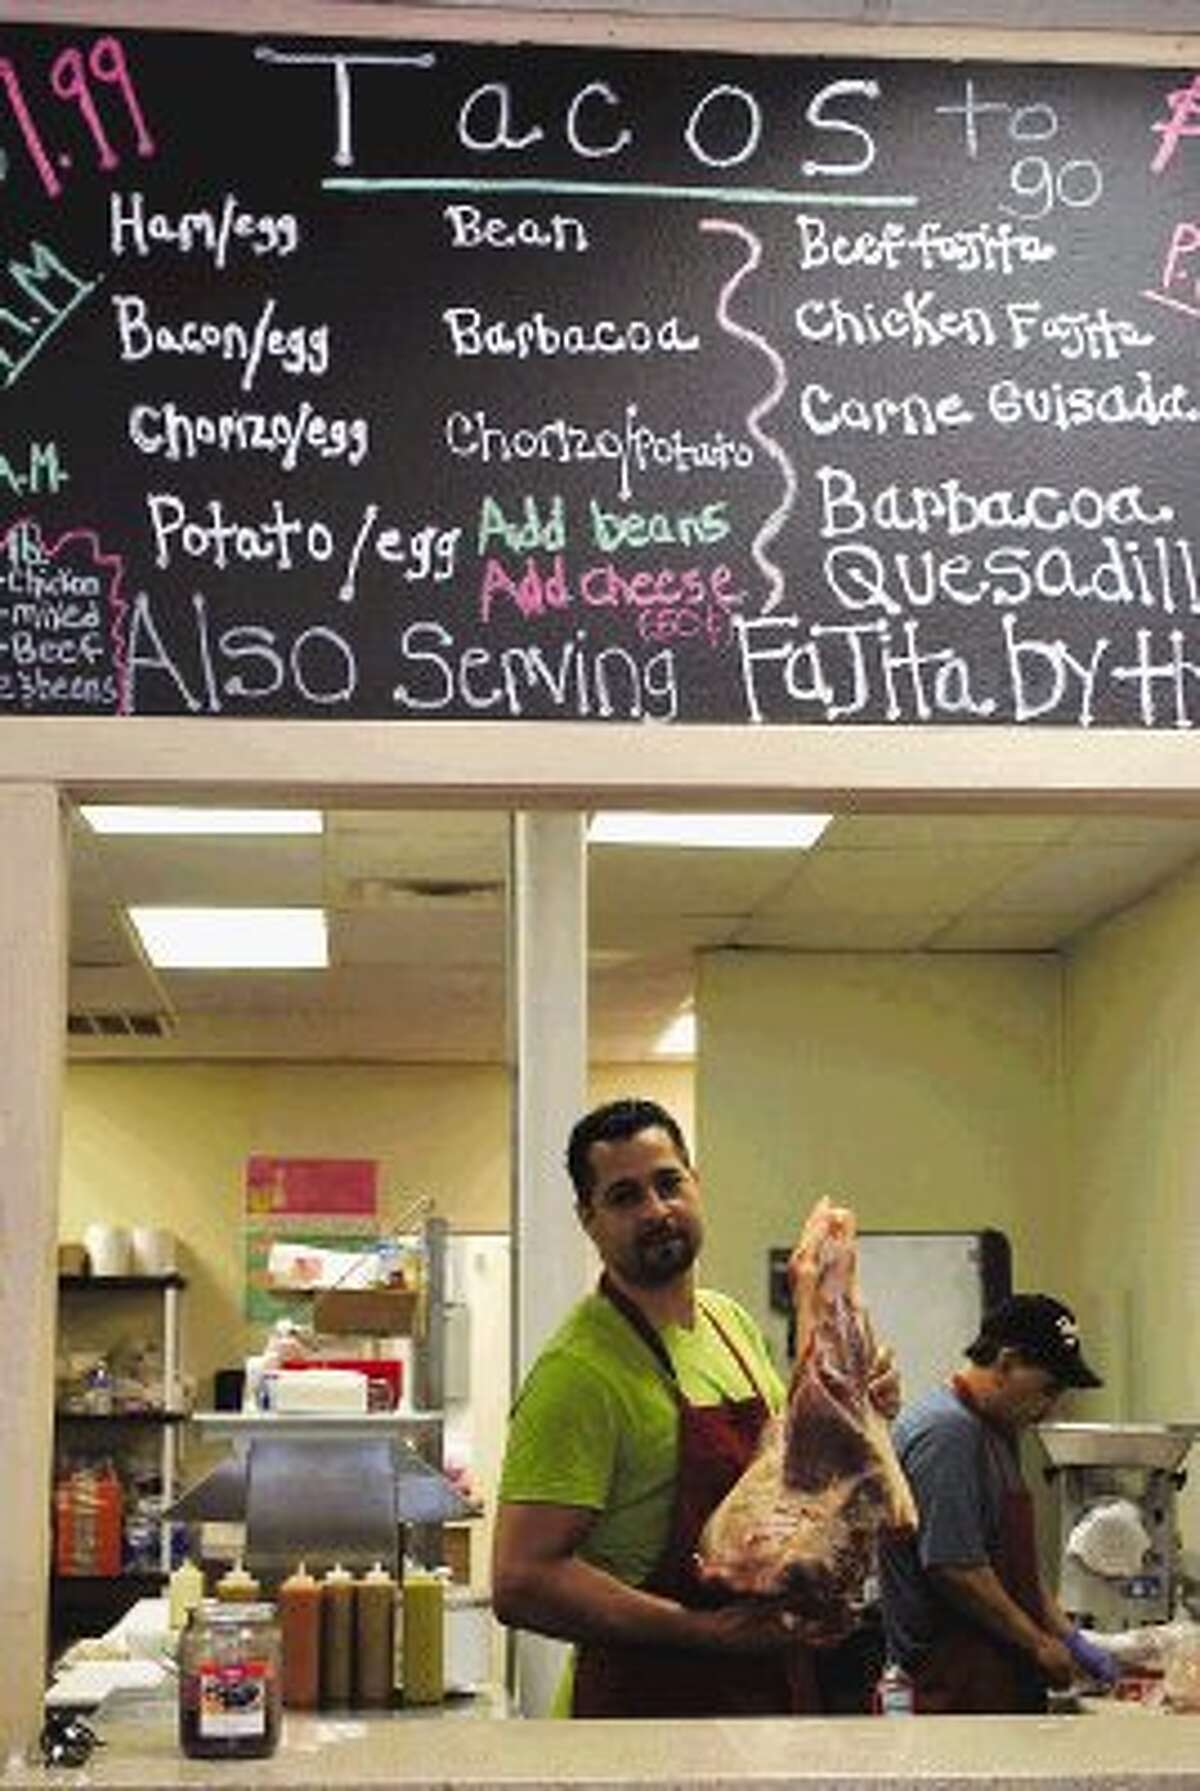 1.99 Tacos to go
Ham/egg Bean Beef fajita
Bacon/egg Barbacoa Chicken Fajita
Chorizo/egg Chorizo/Potato Carne Guisada
A.M.
Potato/egg Add beans Barbacoa
Add cheese
(50¢)
-Chicken
-mixed
-Beef
beans
Also Serving Fajita by